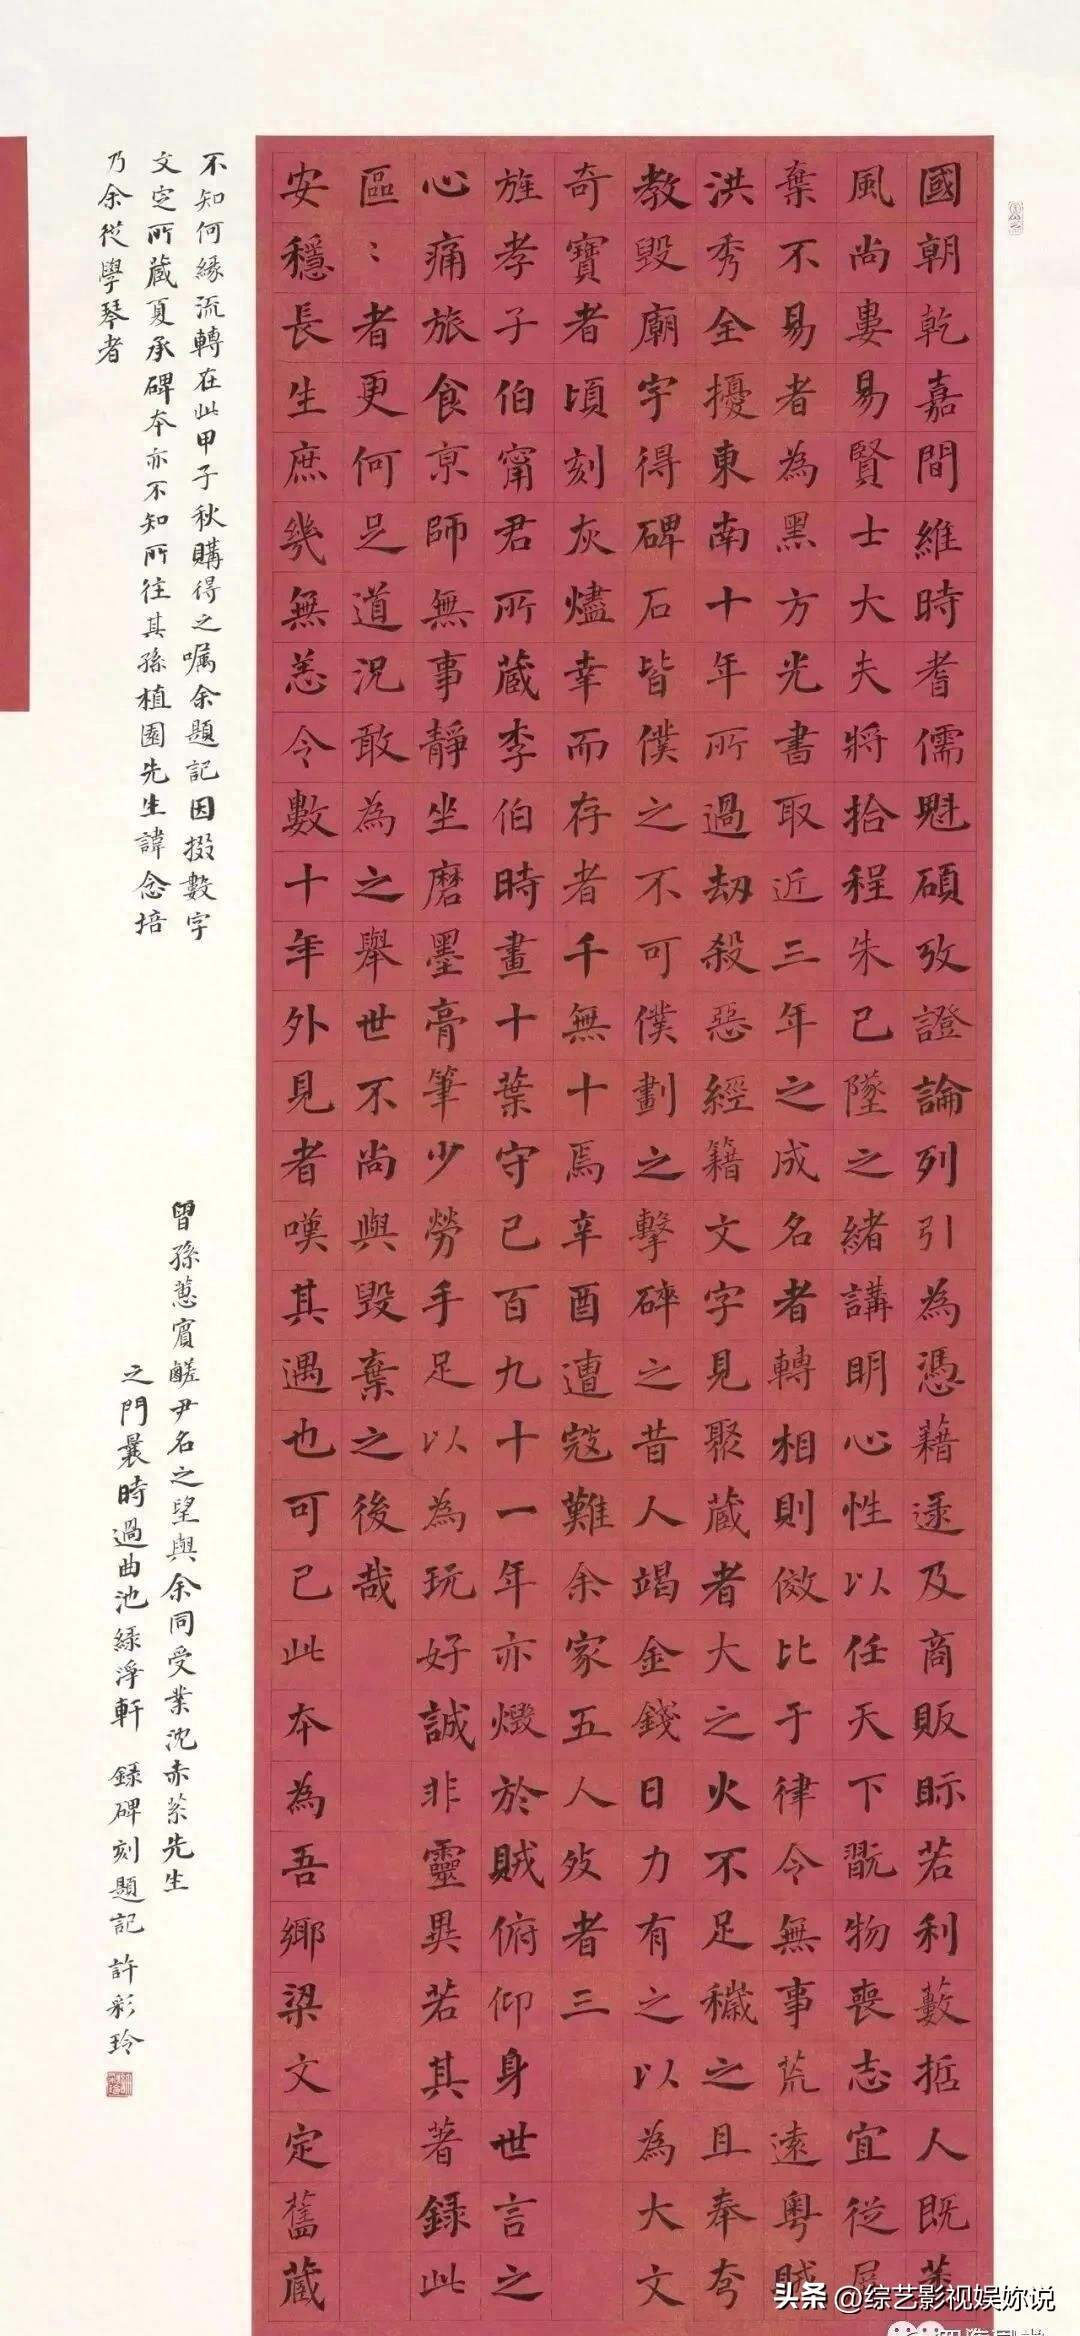 國朝乾嘉間維時耆儒魁碩攷證論列引為憑藉逐及商販眎若利藪哲人既萎
風尚婁易賢士大夫將拾程朱已墜之緒講明心性以任天下翫物喪志宜從屏
棄不易者為黑方光書取近三年之成名者轉相則傚比于律令無事荒遠粵賊
洪秀全擾東南十年所過劫殺惡經籍文字見聚藏者大之火不足穢之且奉夸
教毀廟宇得碑石皆僕之不可僕劃之擊碎之昔人竭金錢日力有之以為大文
奇寶者頃刻灰燼幸而存者千無十焉辛酉遭寇難余家五人歿者三
旌孝子伯甯君所藏李伯時畫十葉守已百九十一年亦燬於賊俯仰身世言之
心痛旅食京師無事靜坐磨墨膏筆少勞手足以為玩好誠非靈異若其著錄此
區〻者更何足道況敢為之舉世不尚與毀棄之後哉
安穩長生庶幾無恙令數十年外見者嘆其遇也可已此本為吾鄉梁文定舊藏
不知何緣流轉在此甲子秋購得之囑余題記因掇數字
文定所藏夏承碑本亦不知所往其孫植園先生諱念培
乃余從學琴者
曾孫蔥賓鹺尹名之望與余同受業沈赤然先生
之門曩時過曲池綠淨軒 錄碑刻題記 許彩玲
头条 @综艺影视娱妳说